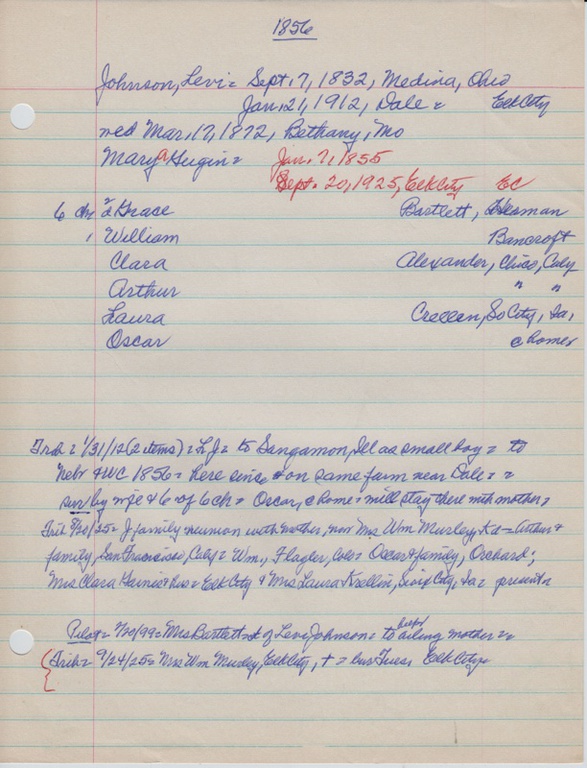 1856
Johnson, Levi = Sept. 7, 1832, Medina, Ohio
Jan. 21, 1912, Dale = Elk City
wed Mar. 17, 1872, Bethany, Mo
Mary A Gugin = Jan. 7, 1855
Sept. 20, 1925, Elk City EC
6 ch 2 Grace Bartlett, Herman
1 William Bancroft
Clara Alexander, Chico, Caly
Arthur " "
Laura Crellen, So City, Ia,
Oscar @ home
Trib = 1/31/12 (2 items) = LJ = to Sangamon, Ill as small boy = to
Nebr & WC 1856 = here since & on same farm near Dale = =
sur by wife & 6 of 6 ch = Oscar, @ home = will stay there with mother =
Trib 25 = J family reunion with mother, now Mrs Wm Murley, = Arthur &
family, San Francisco, Caly = Wm, Flagler, Colo = Oscar & family, Orchard;
Mrs Clara & = Elk City & Mrs Laura Krellin, Sioux City, Ia = present =
Pilot = 7/20/99 = Mrs Bartlett = d of Levi Johnson = to help ailing mother = =
Trib = 9/24/25 = Mrs Wm Murley, Elk City, + = bur Tues Elk City =